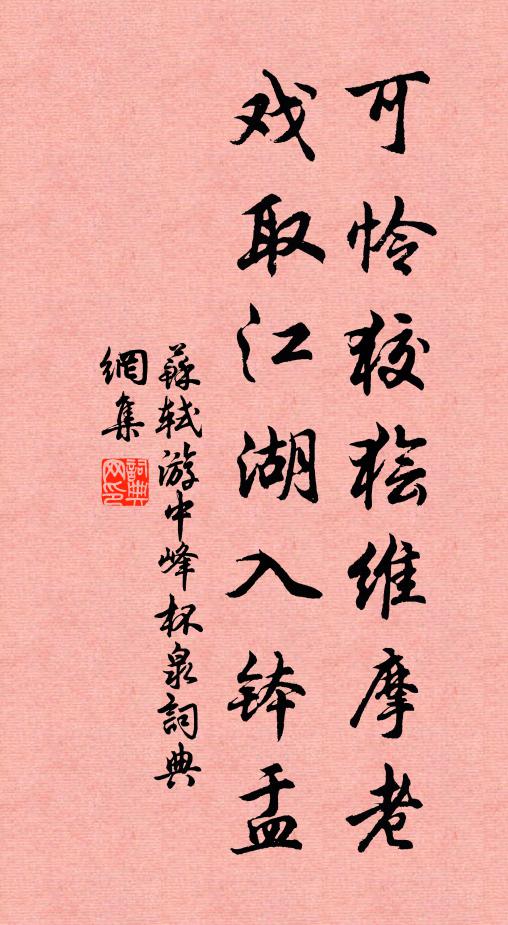 可怜狡狯维摩老
戏取江湖入钵盂
蘇軾游中峰杯泉詞典
網集
詞典网印